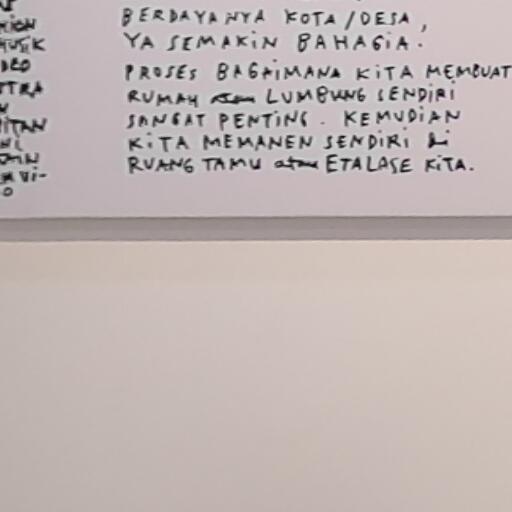 BERDAYANYA KOTA/DESA,
YA SEMAKIN BAHAGIA.
PROSES BAGAIMANA KITA MEMBUAT
RUMAH atau LUMBUNG SENDIRI
SANGAT PENTING. KEMUDIAN
KITA MEMANEN SENDIRI di
RUANG TAMU atau ETALASE KITA.